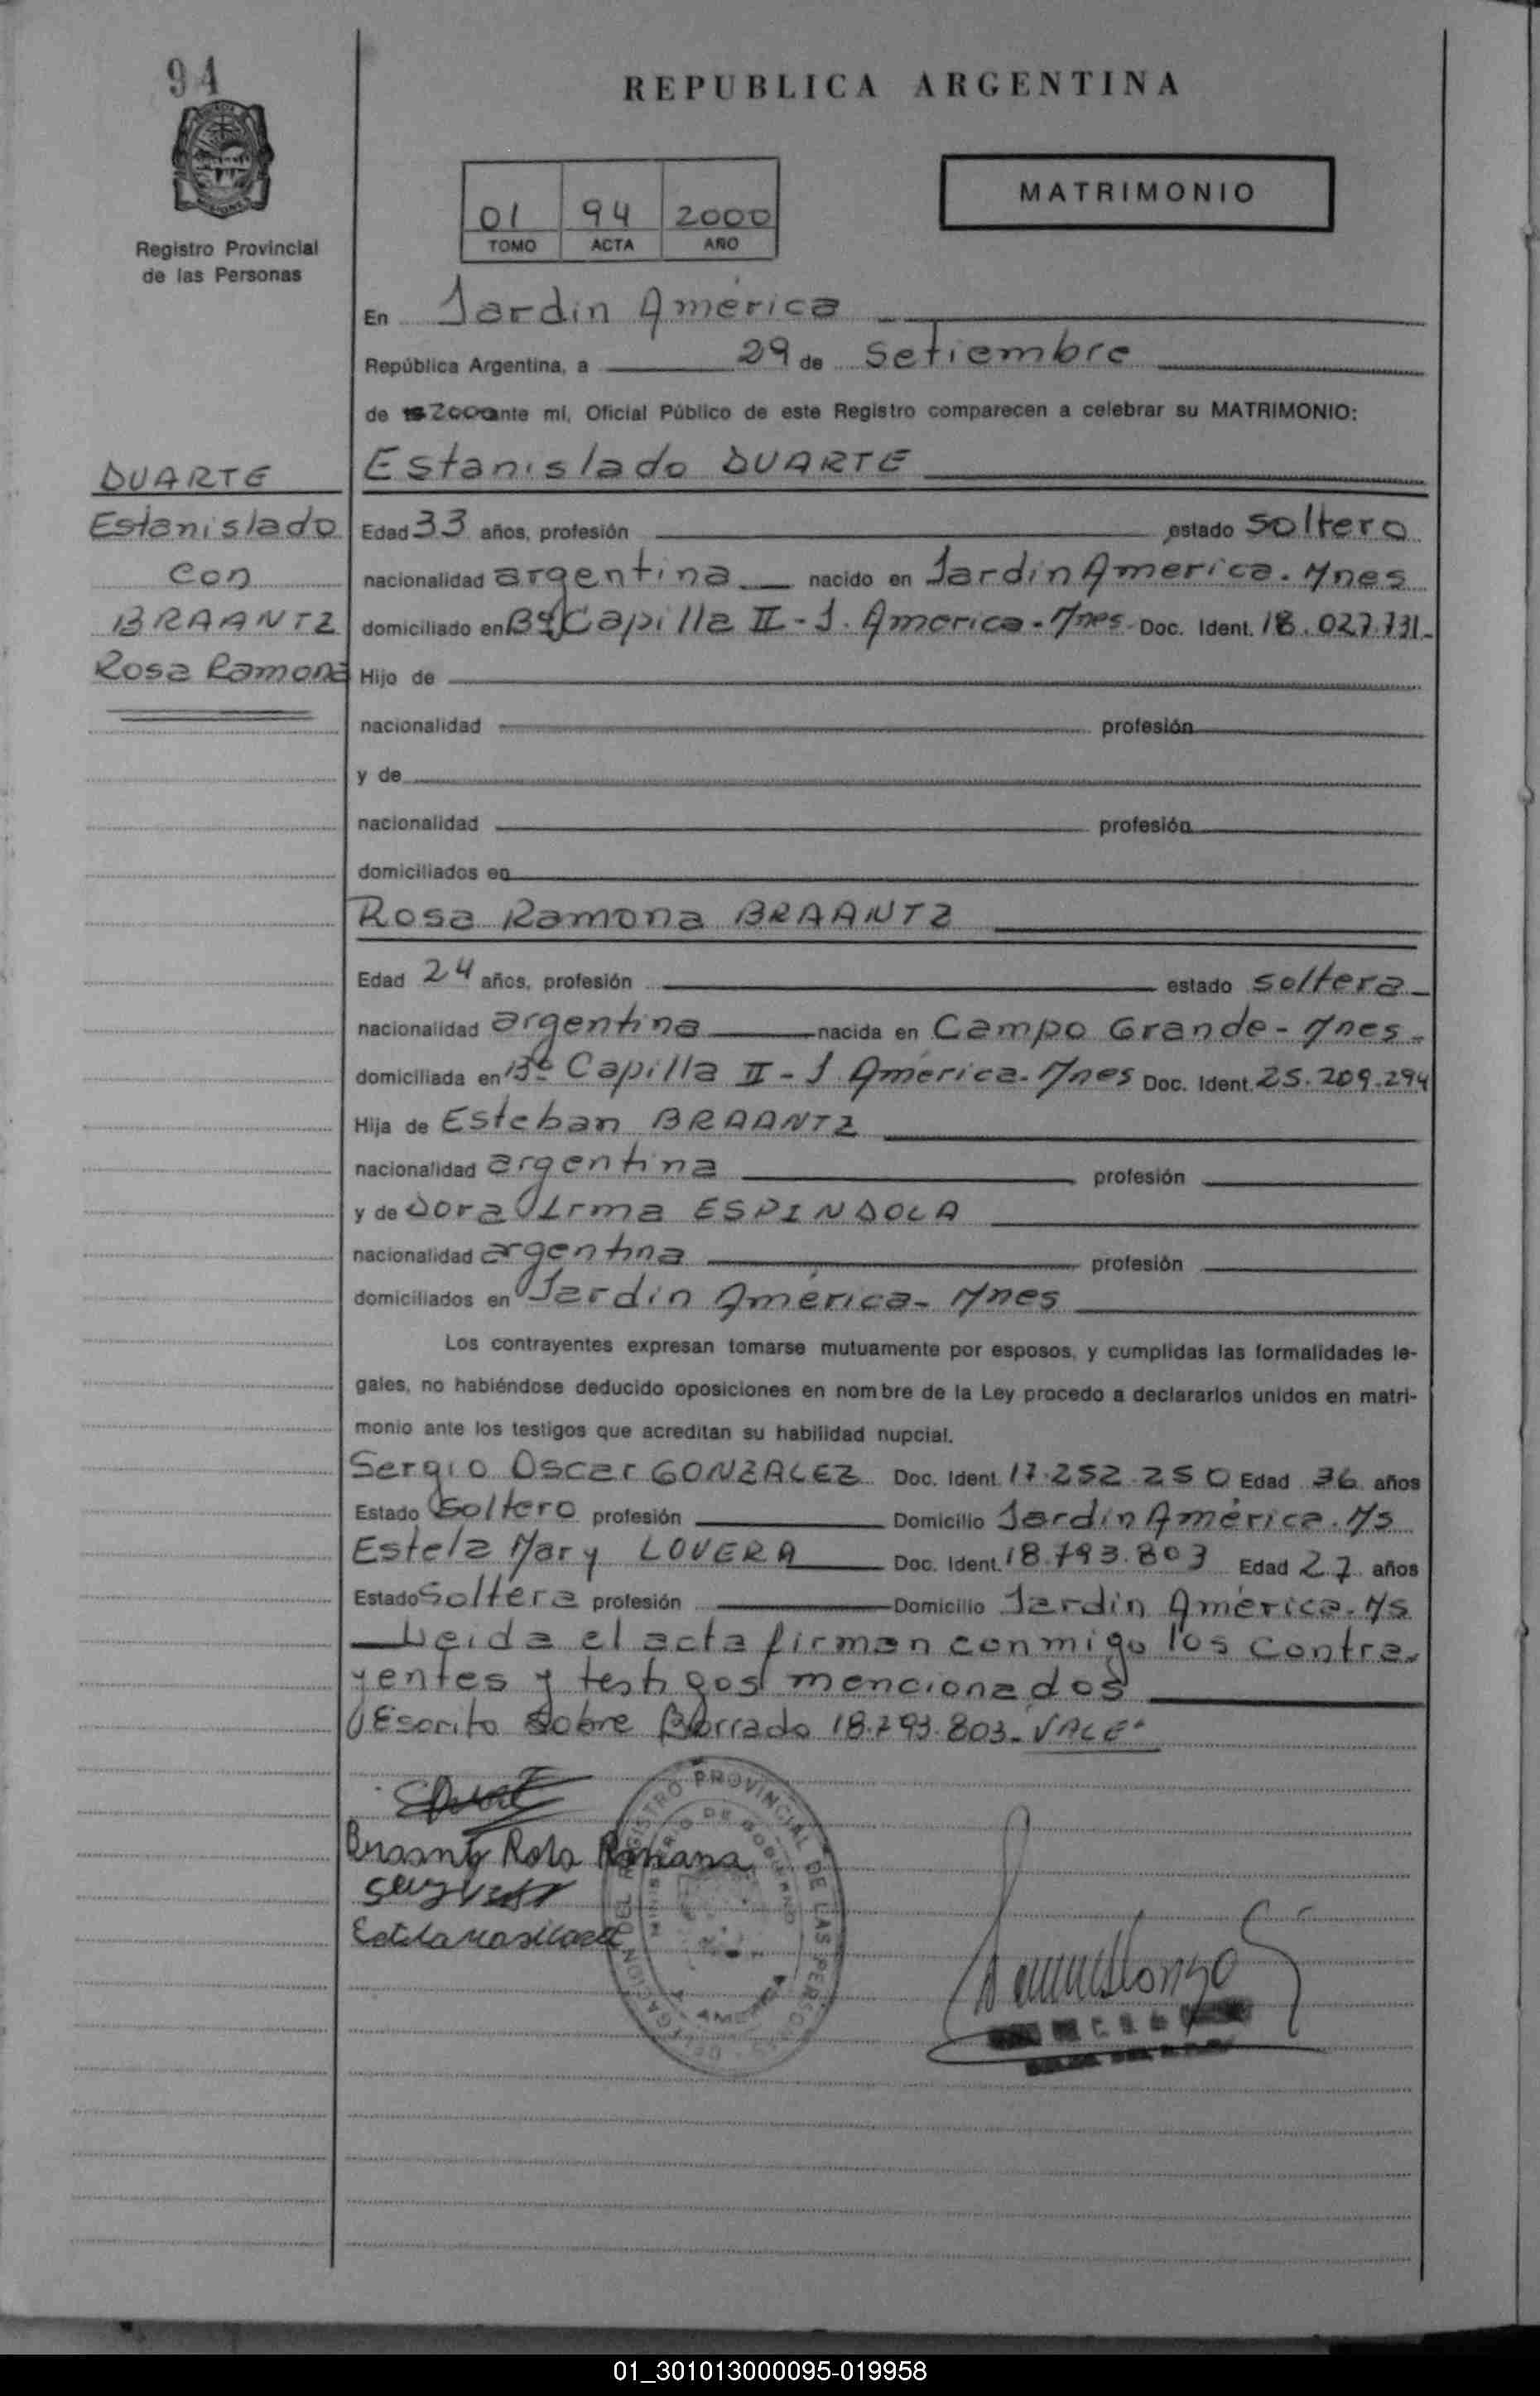 94
REPUBLICA ARGENTINA
Registro Provincial
de las Personas
01 94 2000
TOMO ACTA AÑO
MATRIMONIO
En Jardin América
República Argentina, a 29 de Setiembre
de 2000 ante mí, Oficial Público de este Registro comparecen a celebrar su MATRIMONIO:
DUARTE
Estanislado
con
BRAANTZ
Rosa Ramona
Estanislado DUARTE
Edad 33 años, profesión estado soltero
nacionalidad argentina nacido en Jardin America. Mnes
domiciliado en Bº Capilla II - J. America - Mnes Doc. Ident. 18.027.731-
Hijo de
nacionalidad profesión
y de
nacionalidad profesión
domiciliados en
Rosa Ramona BRAANTZ
Edad 24 años, profesión estado soltera
nacionalidad argentina nacida en Campo Grande - Mnes -
domiciliada en Bº Capilla II - J. América - Mnes Doc. Ident. 25.209.294
Hija de Esteban BRAANTZ
nacionalidad argentina profesión
y de Dora Irma ESPINDOLA
nacionalidad argentina profesión
domiciliados en Jardin América - Mnes
Los contrayentes expresan tomarse mutuamente por esposos, y cumplidas las formalidades le-
gales, no habiéndose deducido oposiciones en nombre de la Ley procedo a declararlos unidos en matri-
monio ante los testigos que acreditan su habilidad nupcial.
Sergio Oscar GONZALEZ Doc. Ident. 17.252.250 Edad 36 años
Estado Soltero profesión Domicilio Jardin América. Ms
Estela Mary LOVERA Doc. Ident. 18.793.803 Edad 27 años
Estado Soltera profesión Domicilio Jardin América. Ms
Leida el acta firman conmigo los contra-
yentes y testigos mencionados
Escrito Sobre Borrado 18.793.803- VALE-
Braantz Rosa Ramona
DELEGACION DEL REGISTRO PROVINCIAL DE LAS PERSONAS
MINISTERIO DE GOBIERNO
01_301013000095-019958